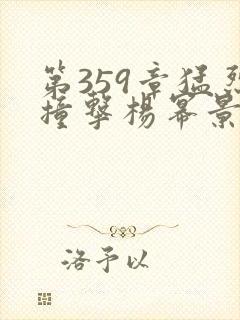 第359章猛烈
撞擊楊冪景
洛予以